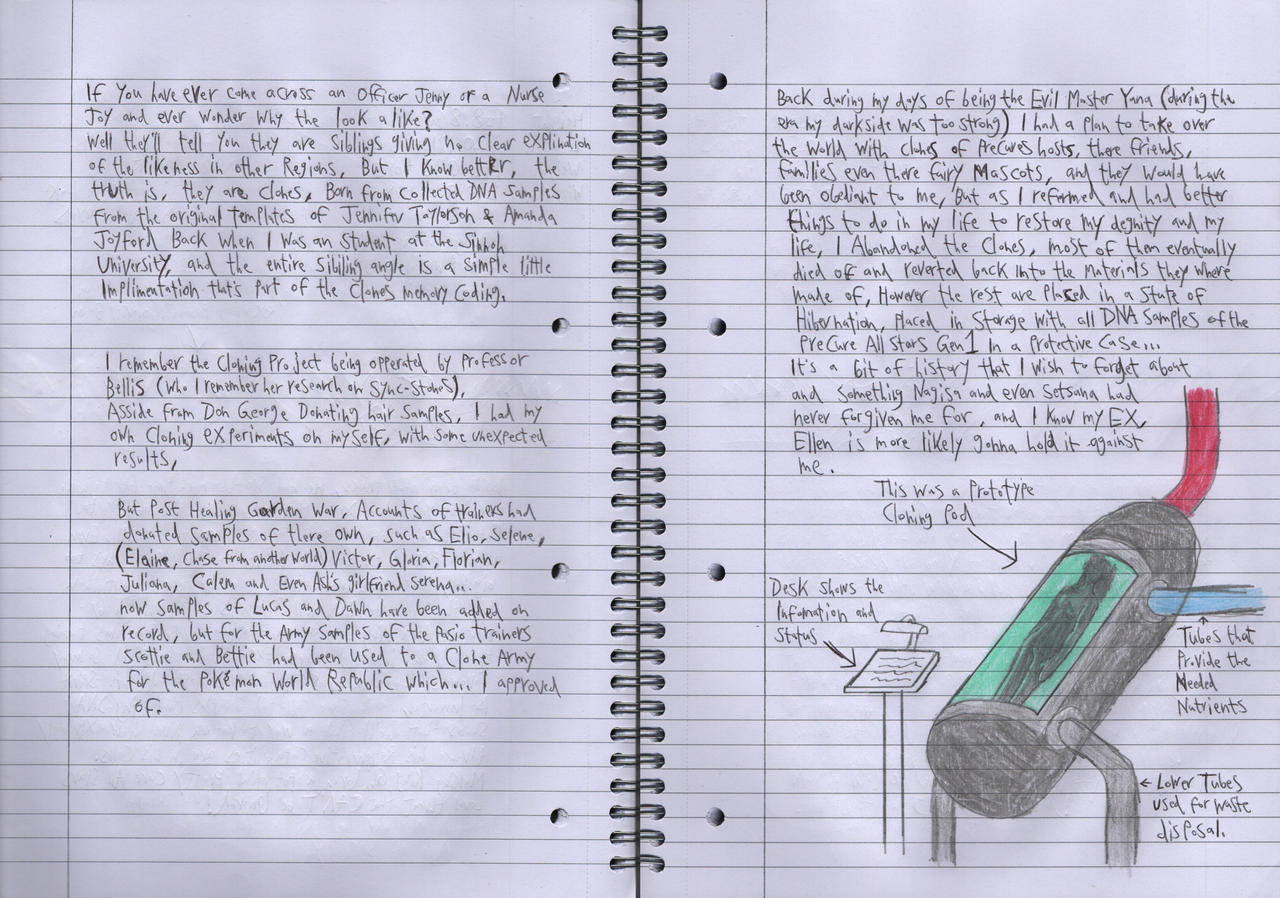 If You have ever come across an Officer Jenny or a Nurse
Joy and ever Wonder Why the look a like?
Well they'll tell You they are Siblings giving no clear explination
of the likeness in other Regions, But I Know better, the
truth is, they are clones, Born from collected DNA samples
from the original templates of Jennifer Taylorson & Amanda
Joyford Back When I Was an student at the Sinnoh
University, and the entire sibiling angle is a simple little
Implimentation that's part of the Clones memory Coding.
I remember the Cloning Project being opperated by Professor
Bellis (Who I remember her research on Sync-Stones),
Asside from Don George Donating hair Samples, I had my
own Cloning experiments on myself, with some unexpected
results,
But Post Healing Garden War, Accounts of trainers had
donated Samples of there own, such as Elio, Selene,
(Elaine, Chase from another World) Victor, Gloria, Florian,
Juliana, Calem and Even Ash's girlfriend serena...
now samples of Lucas and Dawn have been added on
record, but for the Army samples of the Pasio trainers
Scottie and Bettie had been used to a Clone Army
for the Pokémon World Republic which... I approved
of.
Back during my days of being the Evil Master Yana (during the
era my darkside was too strong) I had a plan to take over
the World with clones of Precures hosts, there friends,
families even there fairy Mascots, and they would have
been obediant to me, But as I reformed and had better
things to do in my life to restore my degnity and my
life, I Abandoned the Clones, most of them eventually
died off and reverted back into the Materials they where
made of, However the rest are Placed in a State of
Hibernation, Placed in Storage with all DNA Samples of the
PreCure All Stars Gen1 In a Protective Case...
It's a bit of history that I wish to forget about
and something Nagisa and even Setsuna had
never forgiven me for, and I know my EX,
Ellen is more likely gonna hold it against
me.
This was a Prototype
Cloning Pod
Desk shows the
Infomation and
Status
Tubes that
Provide the
Needed
Nutrients
Lower Tubes
used for waste
disposal.